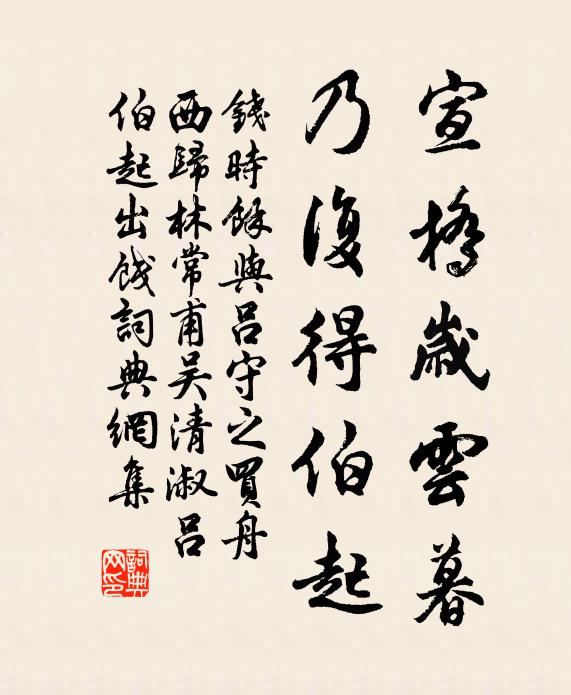 宣橋歲雲暮
乃復得伯起
錢時餘與呂守之買舟
西歸林常甫吳清淑呂
伯起出餞詞典網集
詞典网印